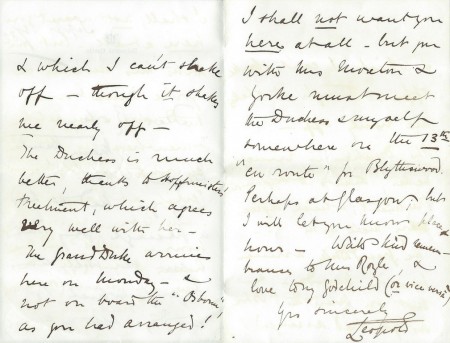 & which I can't shake
off – though it shakes
me nearly off –
The Duchess is much
better, thanks to Hoffmeister's
treatment, which agrees
very well with her –
The Grand Duke arrives
here on Monday – &
not on board the "Osborne",
as you had arranged!
I shall not want you
here at all – but you
with Mrs Moreton &
Yorke must meet
the Duchess & myself
somewhere on the 13th
"en route" for Blythswood.
Perhaps at Glasgow, but
I will let you know place &
hour – With kind remem-
brances to Mrs Royle, &
love to my Godchild (or vice versa)
Yrs sincerely
Leopold